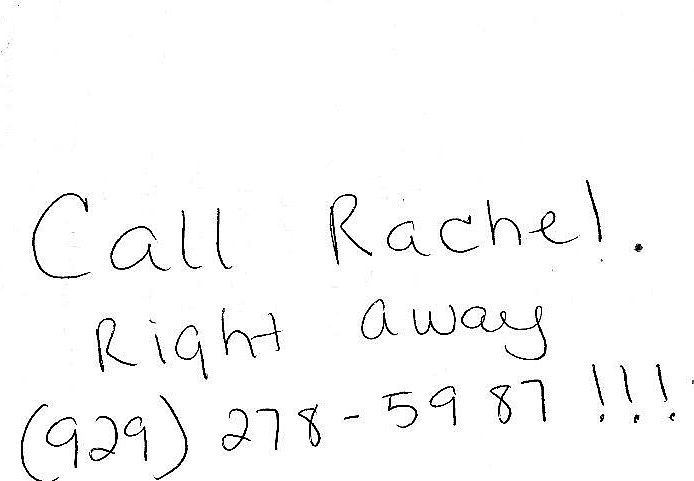 Call Rachel.
Right away
(929) 278-5987 !!!